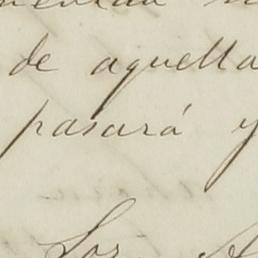 de aquella
pasará y
Los